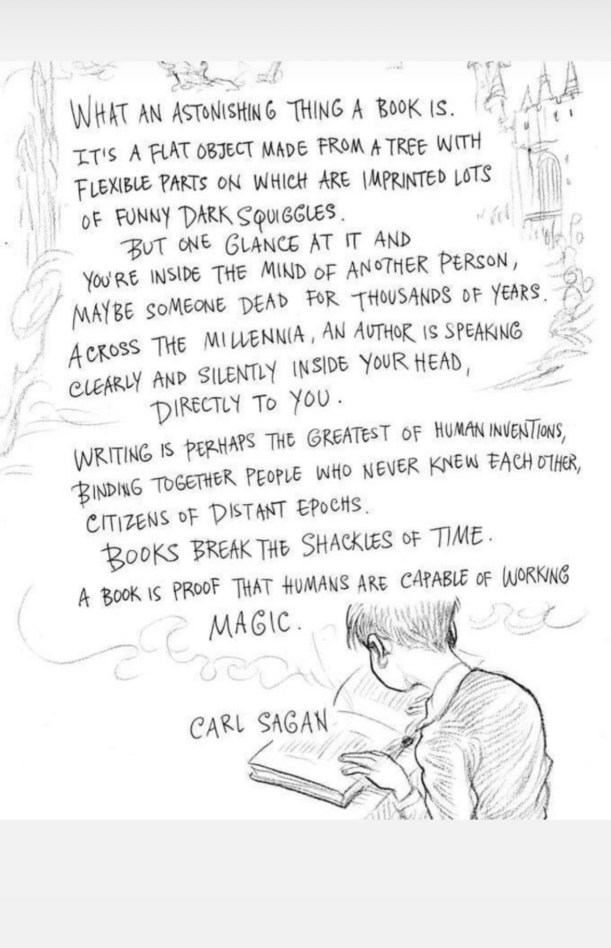 WHAT AN ASTONISHING THING A BOOK IS.
IT'S A FLAT OBJECT MADE FROM A TREE WITH
FLEXIBLE PARTS ON WHICH ARE IMPRINTED LOTS
OF FUNNY DARK SQUIGGLES.
BUT ONE GLANCE AT IT AND
YOU'RE INSIDE THE MIND OF ANOTHER PERSON,
MAYBE SOMEONE DEAD FOR THOUSANDS OF YEARS.
ACROSS THE MILLENNIA, AN AUTHOR IS SPEAKING
CLEARLY AND SILENTLY INSIDE YOUR HEAD,
DIRECTLY TO YOU.
WRITING IS PERHAPS THE GREATEST OF HUMAN INVENTIONS,
BINDING TOGETHER PEOPLE WHO NEVER KNEW EACH OTHER,
CITIZENS OF DISTANT EPOCHS.
BOOKS BREAK THE SHACKLES OF TIME.
A BOOK IS PROOF THAT HUMANS ARE CAPABLE OF WORKING
MAGIC.
CARL SAGAN